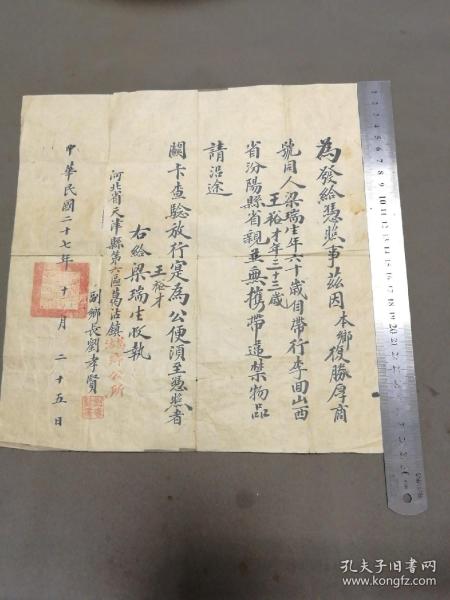 為發給憑照事茲因本鄉復勝厚商
號同人梁瑞生年六十歲自帶行李回山西
王裕才年二十三歲
省汾陽縣省親並無攜帶違禁物品
請沿途
關卡查驗放行寔為公便須至憑照者
王裕才
右給梁瑞生收執
河北省天津縣第六區葛沽鎮
公所
副鄉長劉孝賢
中華民國二十七年十月二十五日
孔夫子旧书网
www.kongfz.com